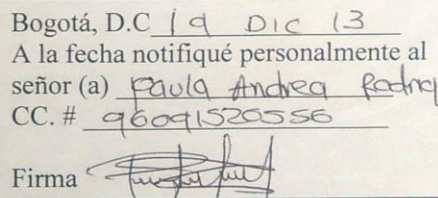 Bogotá, D.C 19 DIC 13
A la fecha notifiqué personalmente al
señor (a) Paula Andrea Rodrig
CC. # 96091520556
Firma